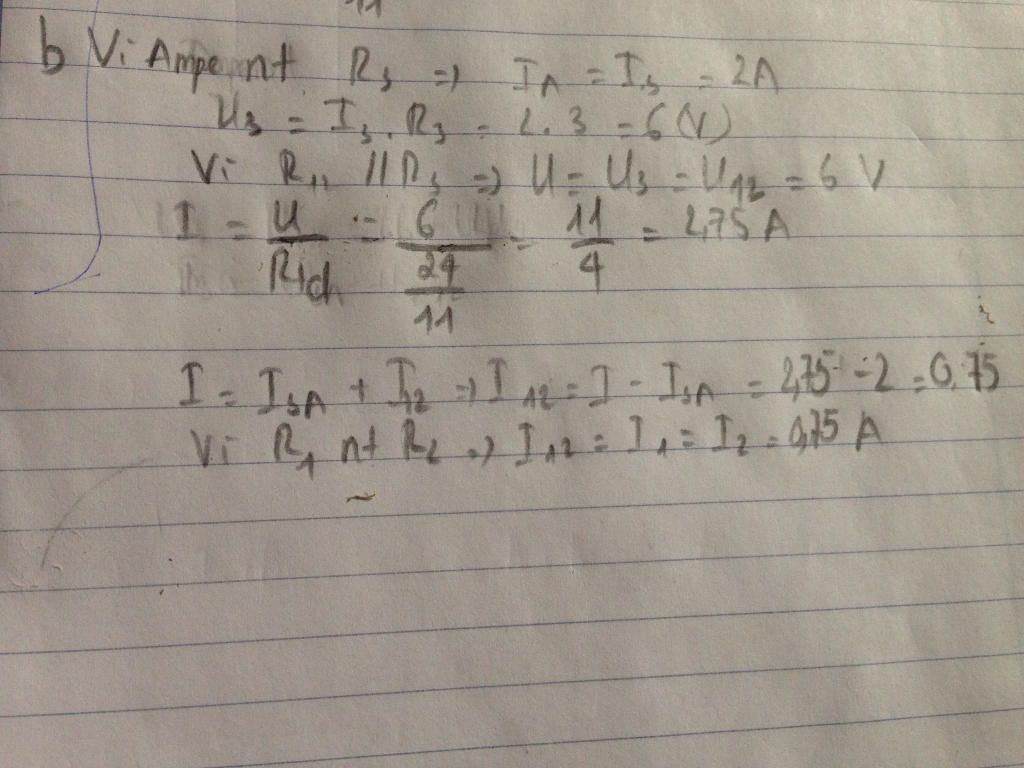 11
b Vì Ampe nt R3 => IA = I3 = 2A
U3 = I3 . R3 = 2. 3 = 6 (V)
Vì R12 // R3 => U = U3 = U12 = 6 V
I = U/Rtđ = 6/(24/11) = 11/4 = 2,75 A
I = I3A + I12 => I12 = I - I3A = 2,75 - 2 = 0,75
Vì R1 nt R2 => I12 = I1 = I2 = 0,75 A